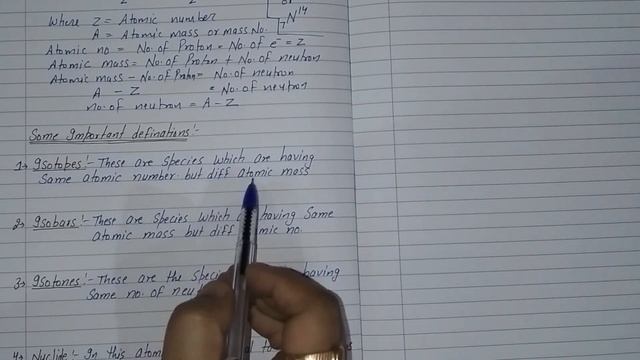 or
Where Z = Atomic number
7N14
A = Atomic mass or mass No.
Atomic no = No. of Proton = No. of e⁻ = Z
Atomic mass = No. of Proton + No. of neutron
Atomic mass - No. of Proton = No. of neutron
A - Z = No. of neutron
no. of neutron = A - Z
Some Important definations:-
1→ Isotobes:- These are species which are having
Same atomic number but diff atomic mass
2→ Isobars:- These are species which having Same
atomic mass but diff no.
3→ Isotones:- These are the having
Same no. of
4→ Nuclide:- In this